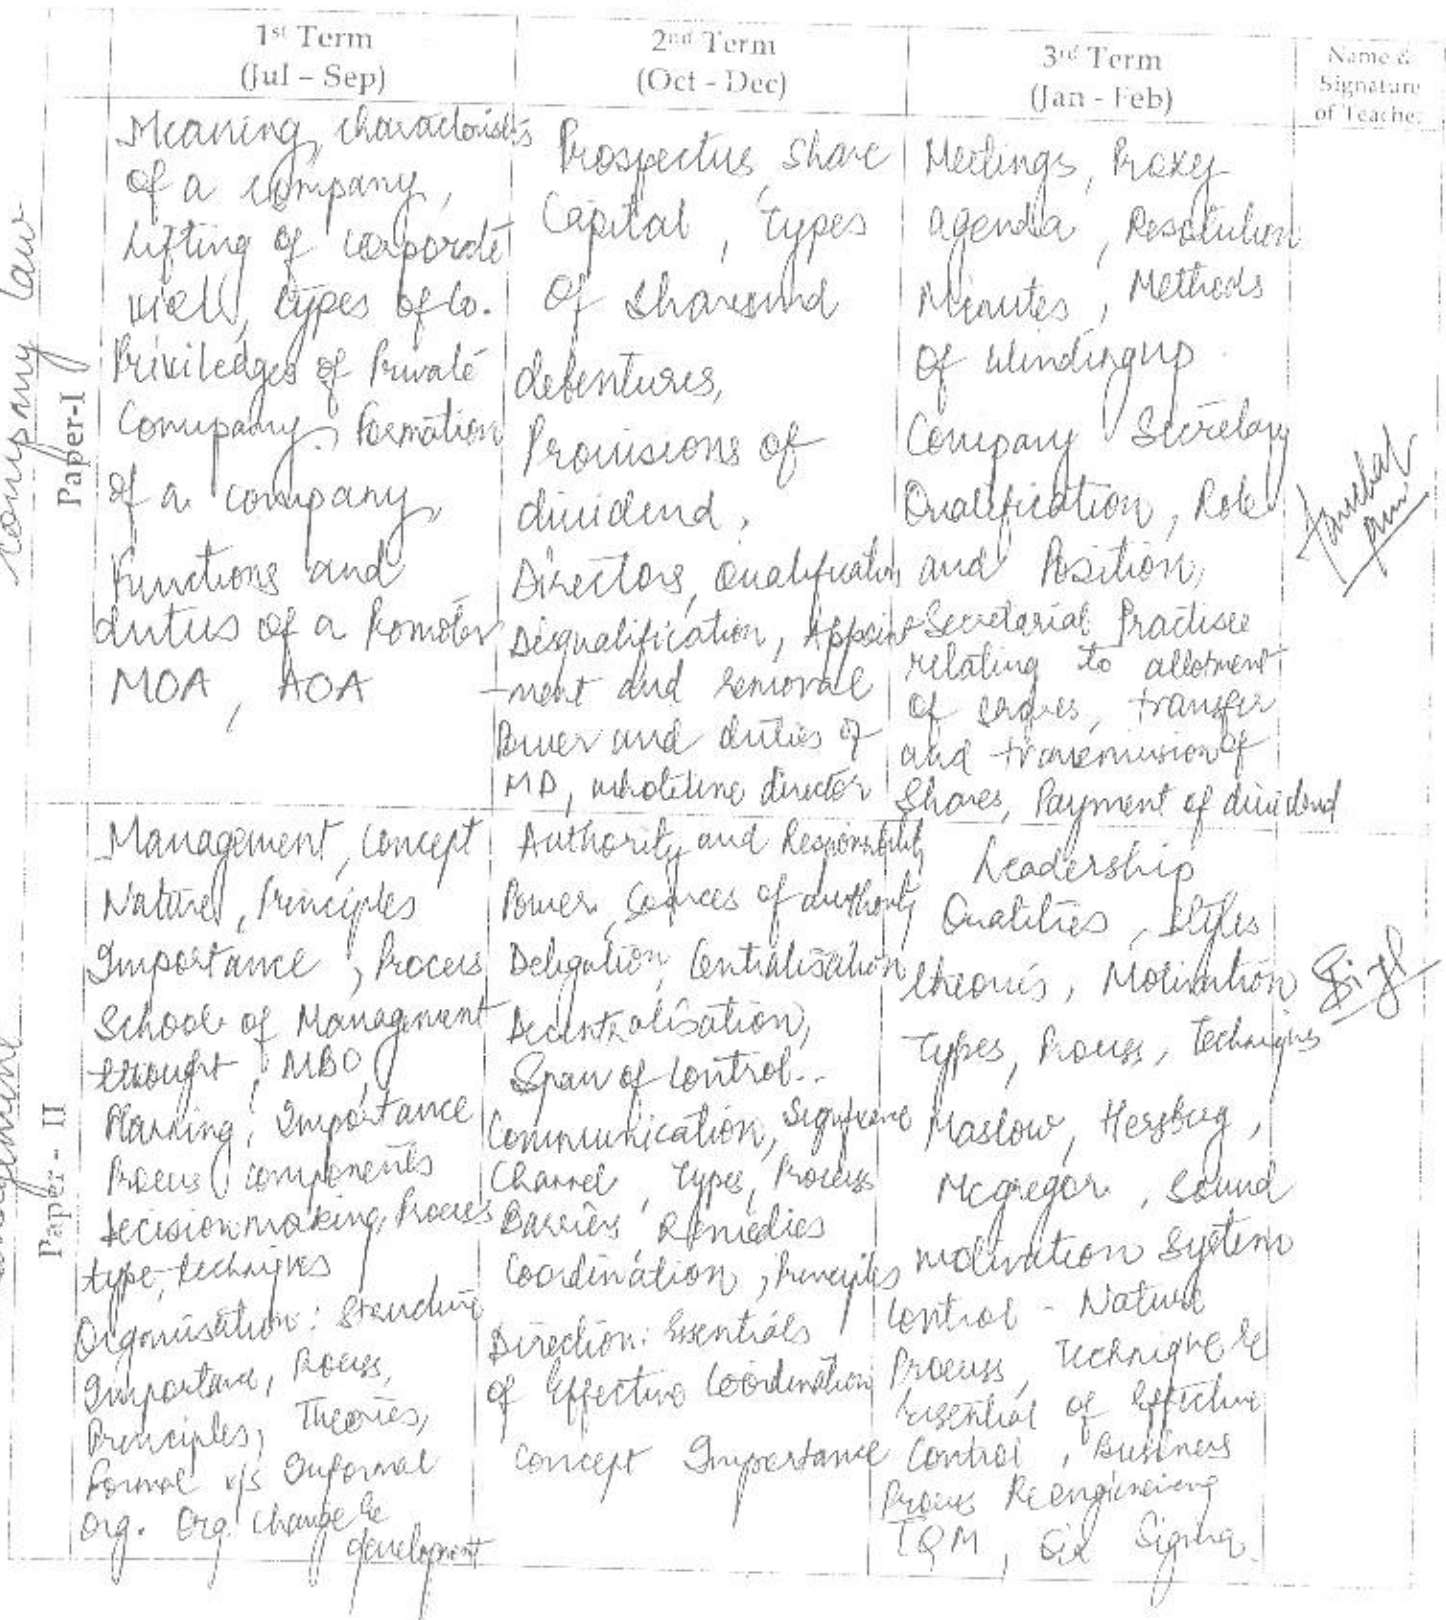 1st Term
(Jul – Sep)
2nd Term
(Oct - Dec)
3rd Term
(Jan - Feb)
Name &
Signature
of Teacher
Company Law
Paper-I
Meaning, characteristics
of a company,
Lifting of corporate
viell, types of Co.
Priviledges of Private
Company, Formation
of a company,
Functions and
duties of a Promoter
MOA, AOA
Prospectus, Share
Capital, Types
of shares and
debentures,
Provisions of
dividend,
Directors, Qualification
Disqualification, Appoint
-ment and removal
Power and duties of
MD, wholetime director
Meetings, Proxy
agenda, Resolution
Minutes, Methods
of winding up
Company Secretary
Qualification, Role
and Position,
Secretarial Practise
relating to allotment
of shares, transfer
and transmission of
Shares, Payment of dividend
Paper - II
Management, Concept
Nature, Principles
Importance, Process
School of Management
thought, MBO,
Planning, Importance
Process, components
Decision making, Process
type, techniques
Organisation: Structure
Importance, Process,
Principles, Theories,
Formal v/s Informal
Org. Org. change &
development
Authority and Responsibility
Power, Sources of authority
Delegation, Centralisation
Decentralisation,
Span of control..
Communication, Significance
Channel, Types, Process
Barriers, Remedies
Coordination, Principles
Direction: Essentials
of Effective Coordination
Concept Importance
Leadership
Qualities, Styles
theories, Motivation
Types, Process, Techniques
Maslow, Herzberg,
Mcgregor, Sound
motivation System
Control - Nature
Process, Technique &
Essential of Effective
Control, Business
Process Reengineering
TQM, Six Sigma